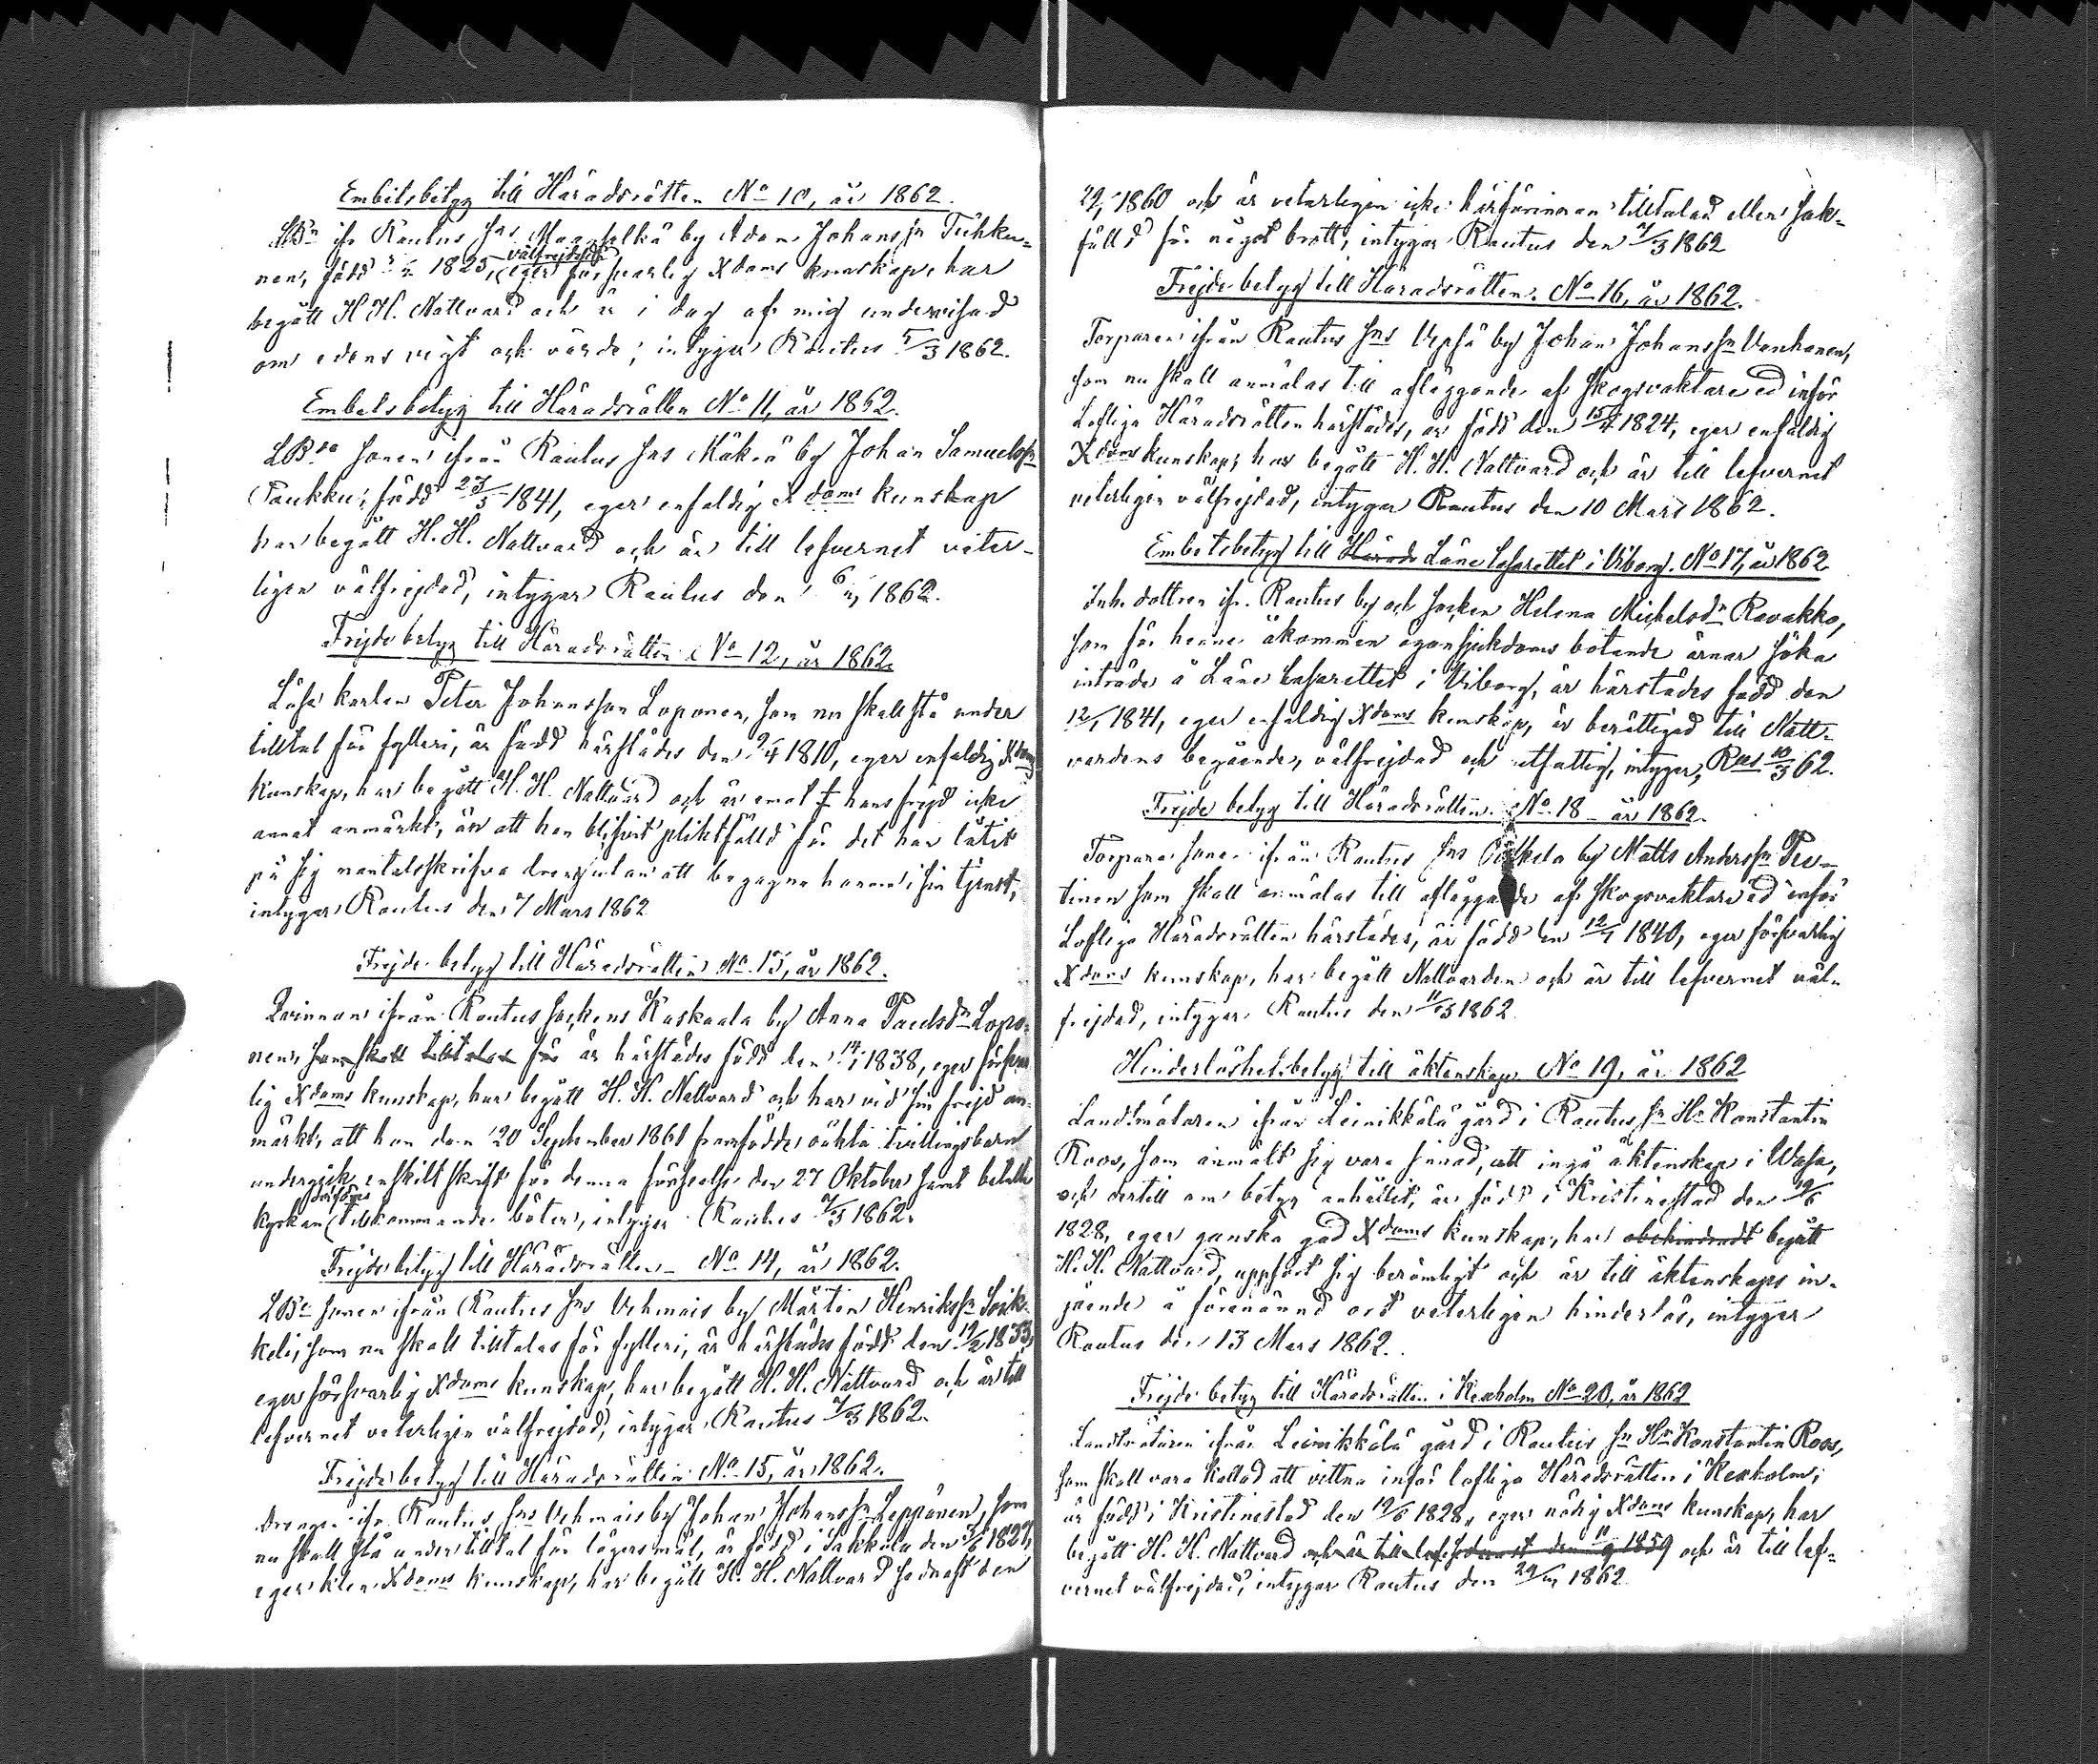 Embetsbetyg till Häradsrätten No 10, år 1862.
LBn ifr Rautus Sns Maanselkä by Adam Johanssn Tuhku-
nen, född 1825, välfrejdad eger försvarlig Xdoms kunskap, har
begått H. H. Nattvard och är i dag af mig undervisad
om edens vigt och värde; intygar Rautus 5/3 1862.
Embetsbetyg till Häradsrätten No 11, år 1862.
LBde sonen ifrån Rautus Sns Mäkrä by Johan Samuelssn
Paukku, född 23/5 1841, eger enfaldig Xdoms kunskap
har begått H. H. Nattvard och är till lefvernet veter-
ligen välfrejdad, intygar Rautus den 6/3 1862.
Frejdebetyg till Häradsrätten No 12, år 1862.
Lösa karlen Peter Johansson Loponen, som nu skall stå under
tilltal för fylleri, är född härstädes den 9/4 1810, eger enfaldig Xdoms
kunskap, har begått H. H. Nattvard och är emot hans frejd icke
annat anmärkt, än att han blifvit pliktfälld för det han låtit
på sig mantalsskrifva dräng utan att begagna honom i sin tjenst,
intygar Rautus den 7 Mars 1862
Frejdebetyg till Häradsrätten No 13, år 1862.
Qvinnan ifrån Rautus Sockens Kaskaala by Anna Paulsdr Lopo-
nen, som skall tilltalas för är härstädes född den 14/1 1838, eger försvar
lig Xdoms kunskap, har begått H. H. Nattvard och har vid sin frejd an-
märkt, att hon den 20 September 1861 framfödde oäkta tvillingsbarn
undergick enskilt skrift för denna förseelse den 27 Oktober samt betalte
kyrkan derföre tillkommande böter, intygar Rautus 7/3 1862.
Frejdebetyg till Häradsrätten No 14, år 1862.
LBde sonen ifrån Rautus Sns Vehmais by Mårten Henrikssn Soik-
keli, som nu skall tilltalas för fylleri, är härstädes född den 19/2 1833,
eger försvarlig Xdoms kunskap, har begått H. H. Nattvard och är till
lefvernet veterligen välfrejdad, intygar Rautus 7/3 1862.
Frejdebetyg till Häradsrätten No 15, år 1862.
drängen ifr. Rautus Sns Vehmais by Johan Johanssn Leppänen, som
nu skall stå under tilltal för lägersmål, är född i Sakkola den 1827,
eger klen Xdoms kunskap, har begått H. H. Nattvard sednast den
1860 och är veterligen icke härförinnan tilltalad eller sak-
fälld för något brott, intygar Rautus den 7/3 1862
Frejdebetyg till Häradsrätten. No 16, år 1862.
Torparen ifrån Rautus Sns by Johan Johanssn Vanhanen,
som nu skall anmälas till afläggande af skogsvaktare ed inför
Lofliga Häradsrätten härstädes, är född den 15/4 1824, eger enfaldig
Xdoms kunskap, har begått H. H. Nattvard och är till lefvernet
veterligen välfrejdad, intygar Rautus den 10 Mars 1862.
Embetsbetyg till Härads Läns Lasarettet i Viborg. No 17, år 1862
Inh. dottren ifr. Rautus by och socken Helena Michelsdr Ravakko,
som för henne åkommen ögonsjukdoms botande ärnar söka
inträde å Läns Lasarettet i Viborg, är härstädes född den
12/1 1841, eger enfaldig Xdoms kunskap, är berättigad till Natt-
vardens begående, välfrejdad och utfattig, intygar, Rus 10/3 62.
Frejdebetyg till Häradsrätten. No 18 år 1862.
Torpare sonen ifrån Rautus Sns by Matts Anderssn
tinen som skall anmälas till afläggande af skogsvaktare ed inför
Lofliga Häradsrätten härstädes, är född den 12/1 1840, eger försvarlig
Xdoms kunskap, har begått Nattvarden och är till lefvernet väl-
frejdad, intygar Rautus den 11/3 1862.
Hinderlöshetsbetyg till äktenskap No 19, år 1862
Landtmätaren ifrån Leinikkälä gård i Rautus Sn Hr Konstantin
Roos, som anmält sig vara sinnad, att ingå äktenskap i Wasa,
och dertill om betyg anhållit, är född i Kristinestad den 19/6
1828, eger ganska god Xdoms kunskap, har obehindradt begått
H. H. Nattvard, uppfört sig berömligt och är till äktenskaps in-
gående å förenämnd ort veterligen hinderlös, intygar
Rautus den 13 Mars 1862.
Frejdebetyg till Häradsrätten i Kexholm No 20, år 1862
Landtmätaren ifrån Leinikkälä gård i Rautus Sn Hr Konstantin Roos,
som skall vara kallad att vittna inför lofliga Häradsrätten i Kexholm,
är född i Kristinestad den 19/6 1828, eger nöjig Xdoms kunskap, har
begått H. H. Nattvard och är till lef sednast den 11/9 1859 och är till lef-
vernet välfrejdad, intygar Rautus den 1862.